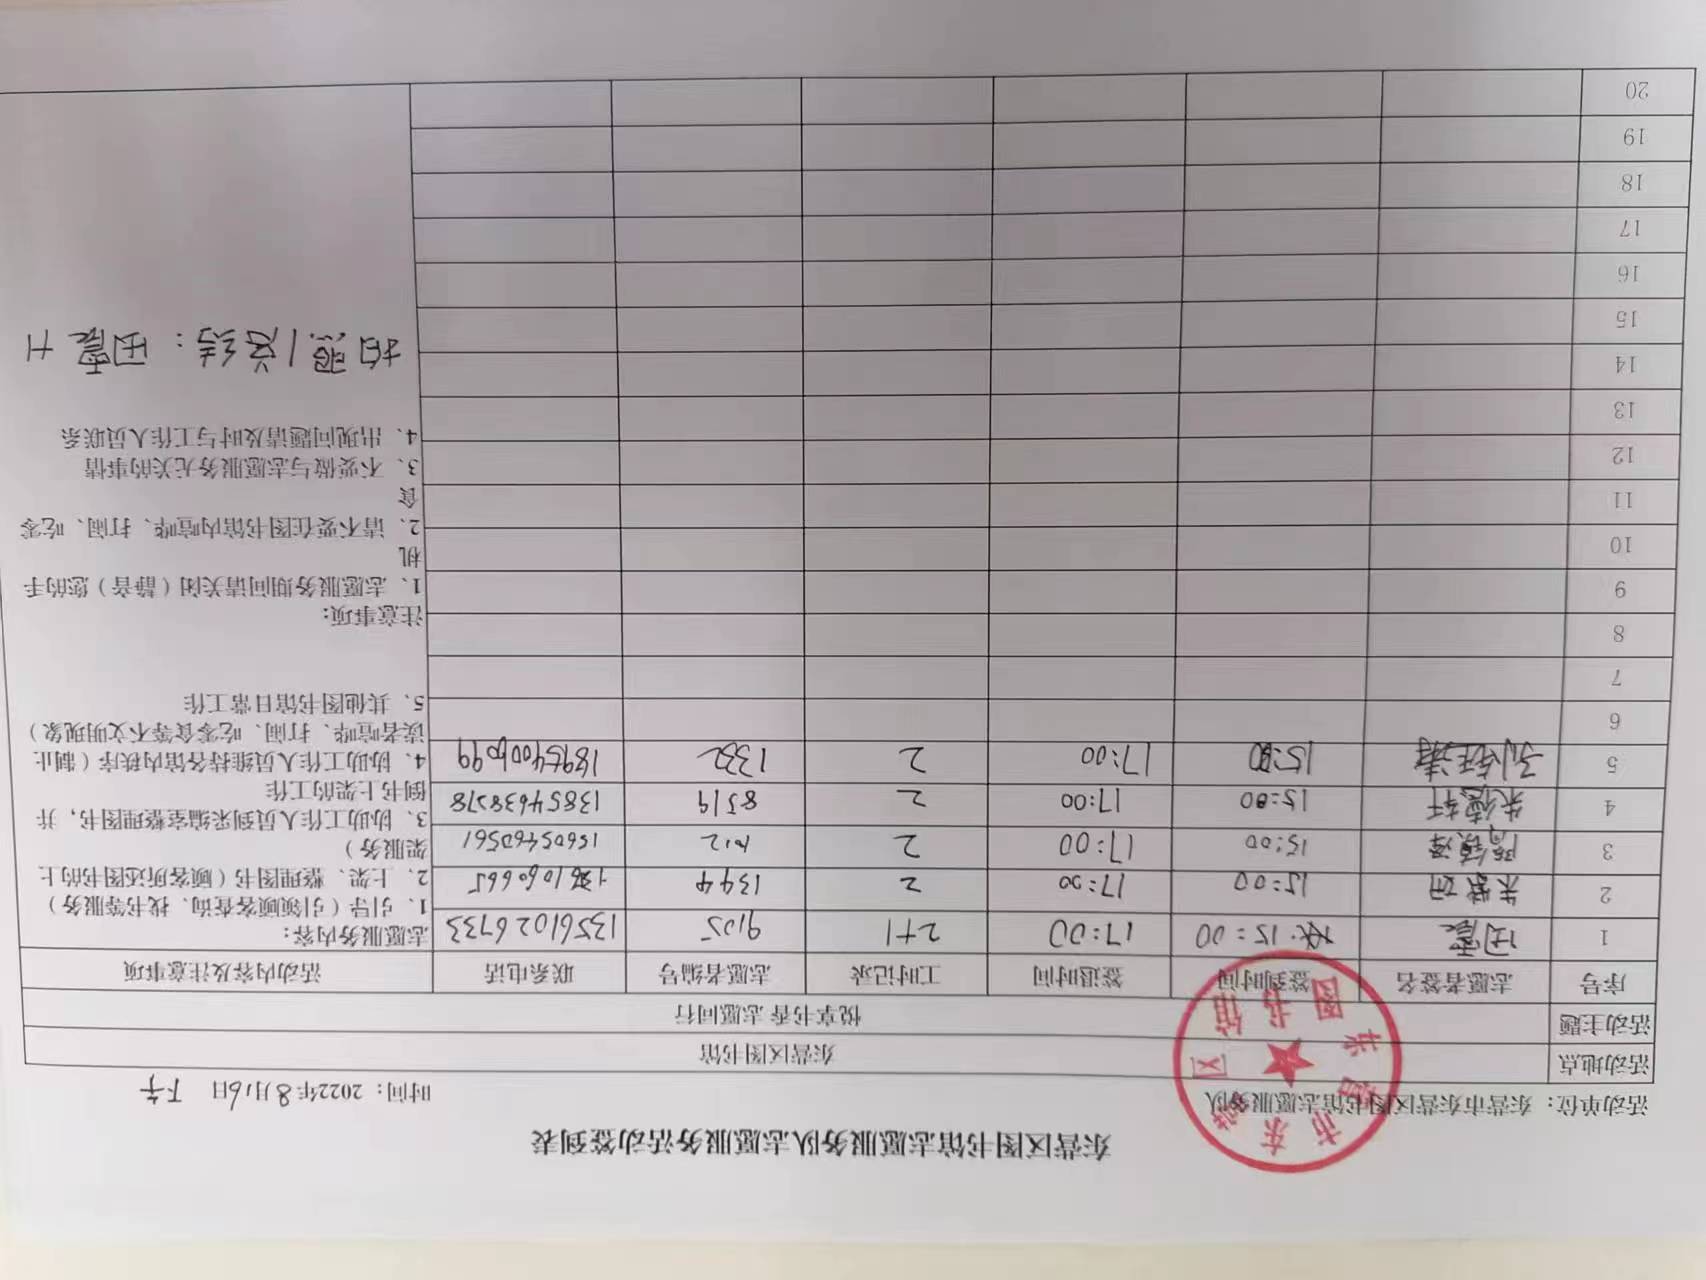 东营区图书馆志愿服务队志愿服务活动签到表
活动单位：东营市东营区图书馆志愿服务队 时间：2022年8月16日 下午
活动地点 东营区图书馆
活动主题 悦享书香 志愿同行
序号 志愿者签名 签到时间 签退时间 工时记录 志愿者编号 联系电话 活动内容及注意事项
1 田震 15:00 17:00 2+1 9105 13561026733
2 朱 15:00 17:00 2 1344
3 隋 泽 15:00 17:00 2 15605460561
4 朱德轩 15:00 17:00 2 8519 13854638578
5 17:00 2
6
7
8
9
10
11
12
13
14
15
16
17
18
19
20
志愿服务内容：
1、引导（引领顾客查询、找书等服务）
2、上架、整理图书（顾客所还图书的上
架服务）
3、协助工作人员到采编室整理图书，并
倒书上架的工作
4、协助工作人员维持各馆内秩序（制止
读者喧哗、打闹、吃零食等不文明现象）
5、其他图书馆日常工作
注意事项：
1、志愿服务期间请关闭（静音）您的手
机
2、请不要在图书馆内喧哗、打闹、吃零
食
3、不要做与志愿服务无关的事情
4、出现问题请及时与工作人员联系
拍照/总结：田震 H
东营市东营区图书馆